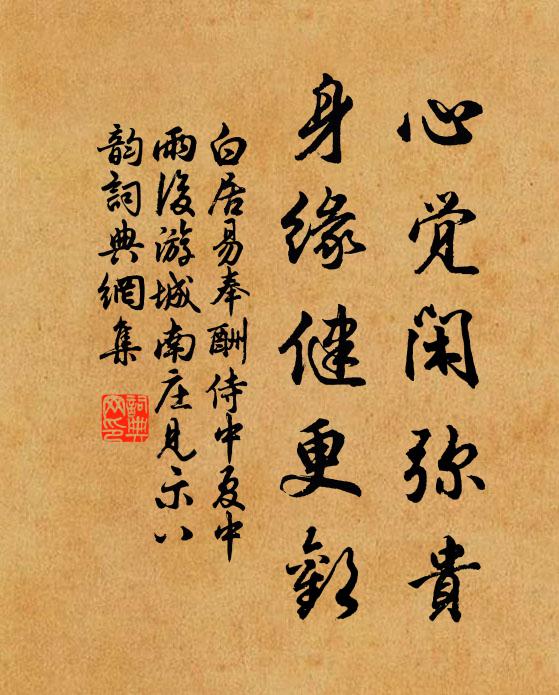 心觉闲弥貴
身缘健更歡
白居易奉酬侍中夏中
雨後游城南庄見示八
韵詞典網集
詞典
网印